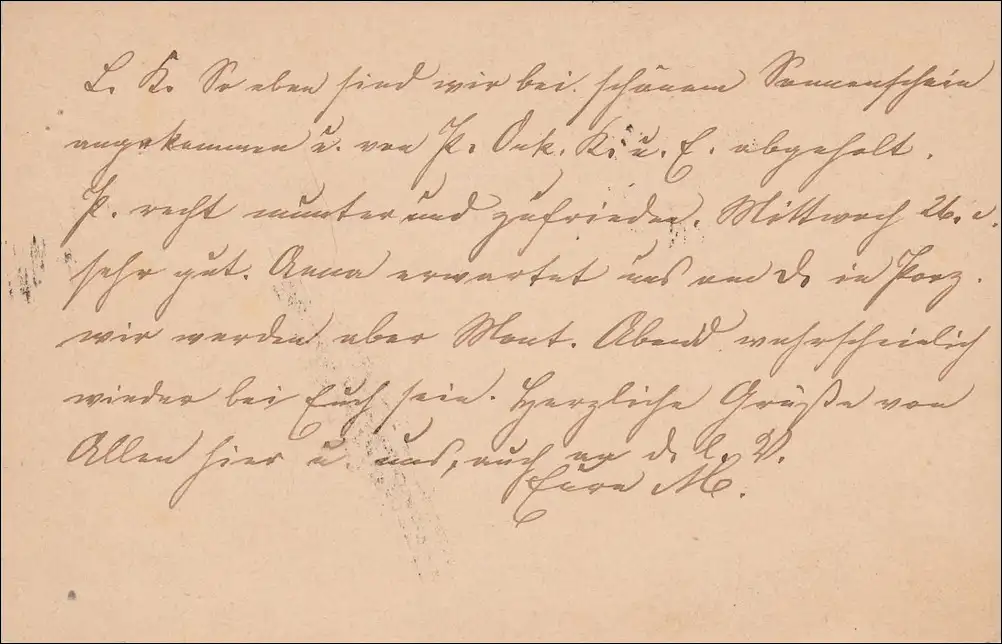 L. K. So eben sind wir bei schönem Sonnenschein
angekommen u. von P. Onk. K. u. E. abgeholt.
P. recht munter und zufrieden. Mittwoch
sehr gut. Anna erwartet uns in
wir werden aber Mont. Abend wahrscheinlich
wieder bei Euch sein. Herzliche Grüße von
Allen hier u. uns, auch an d. l. V.
Eure M.